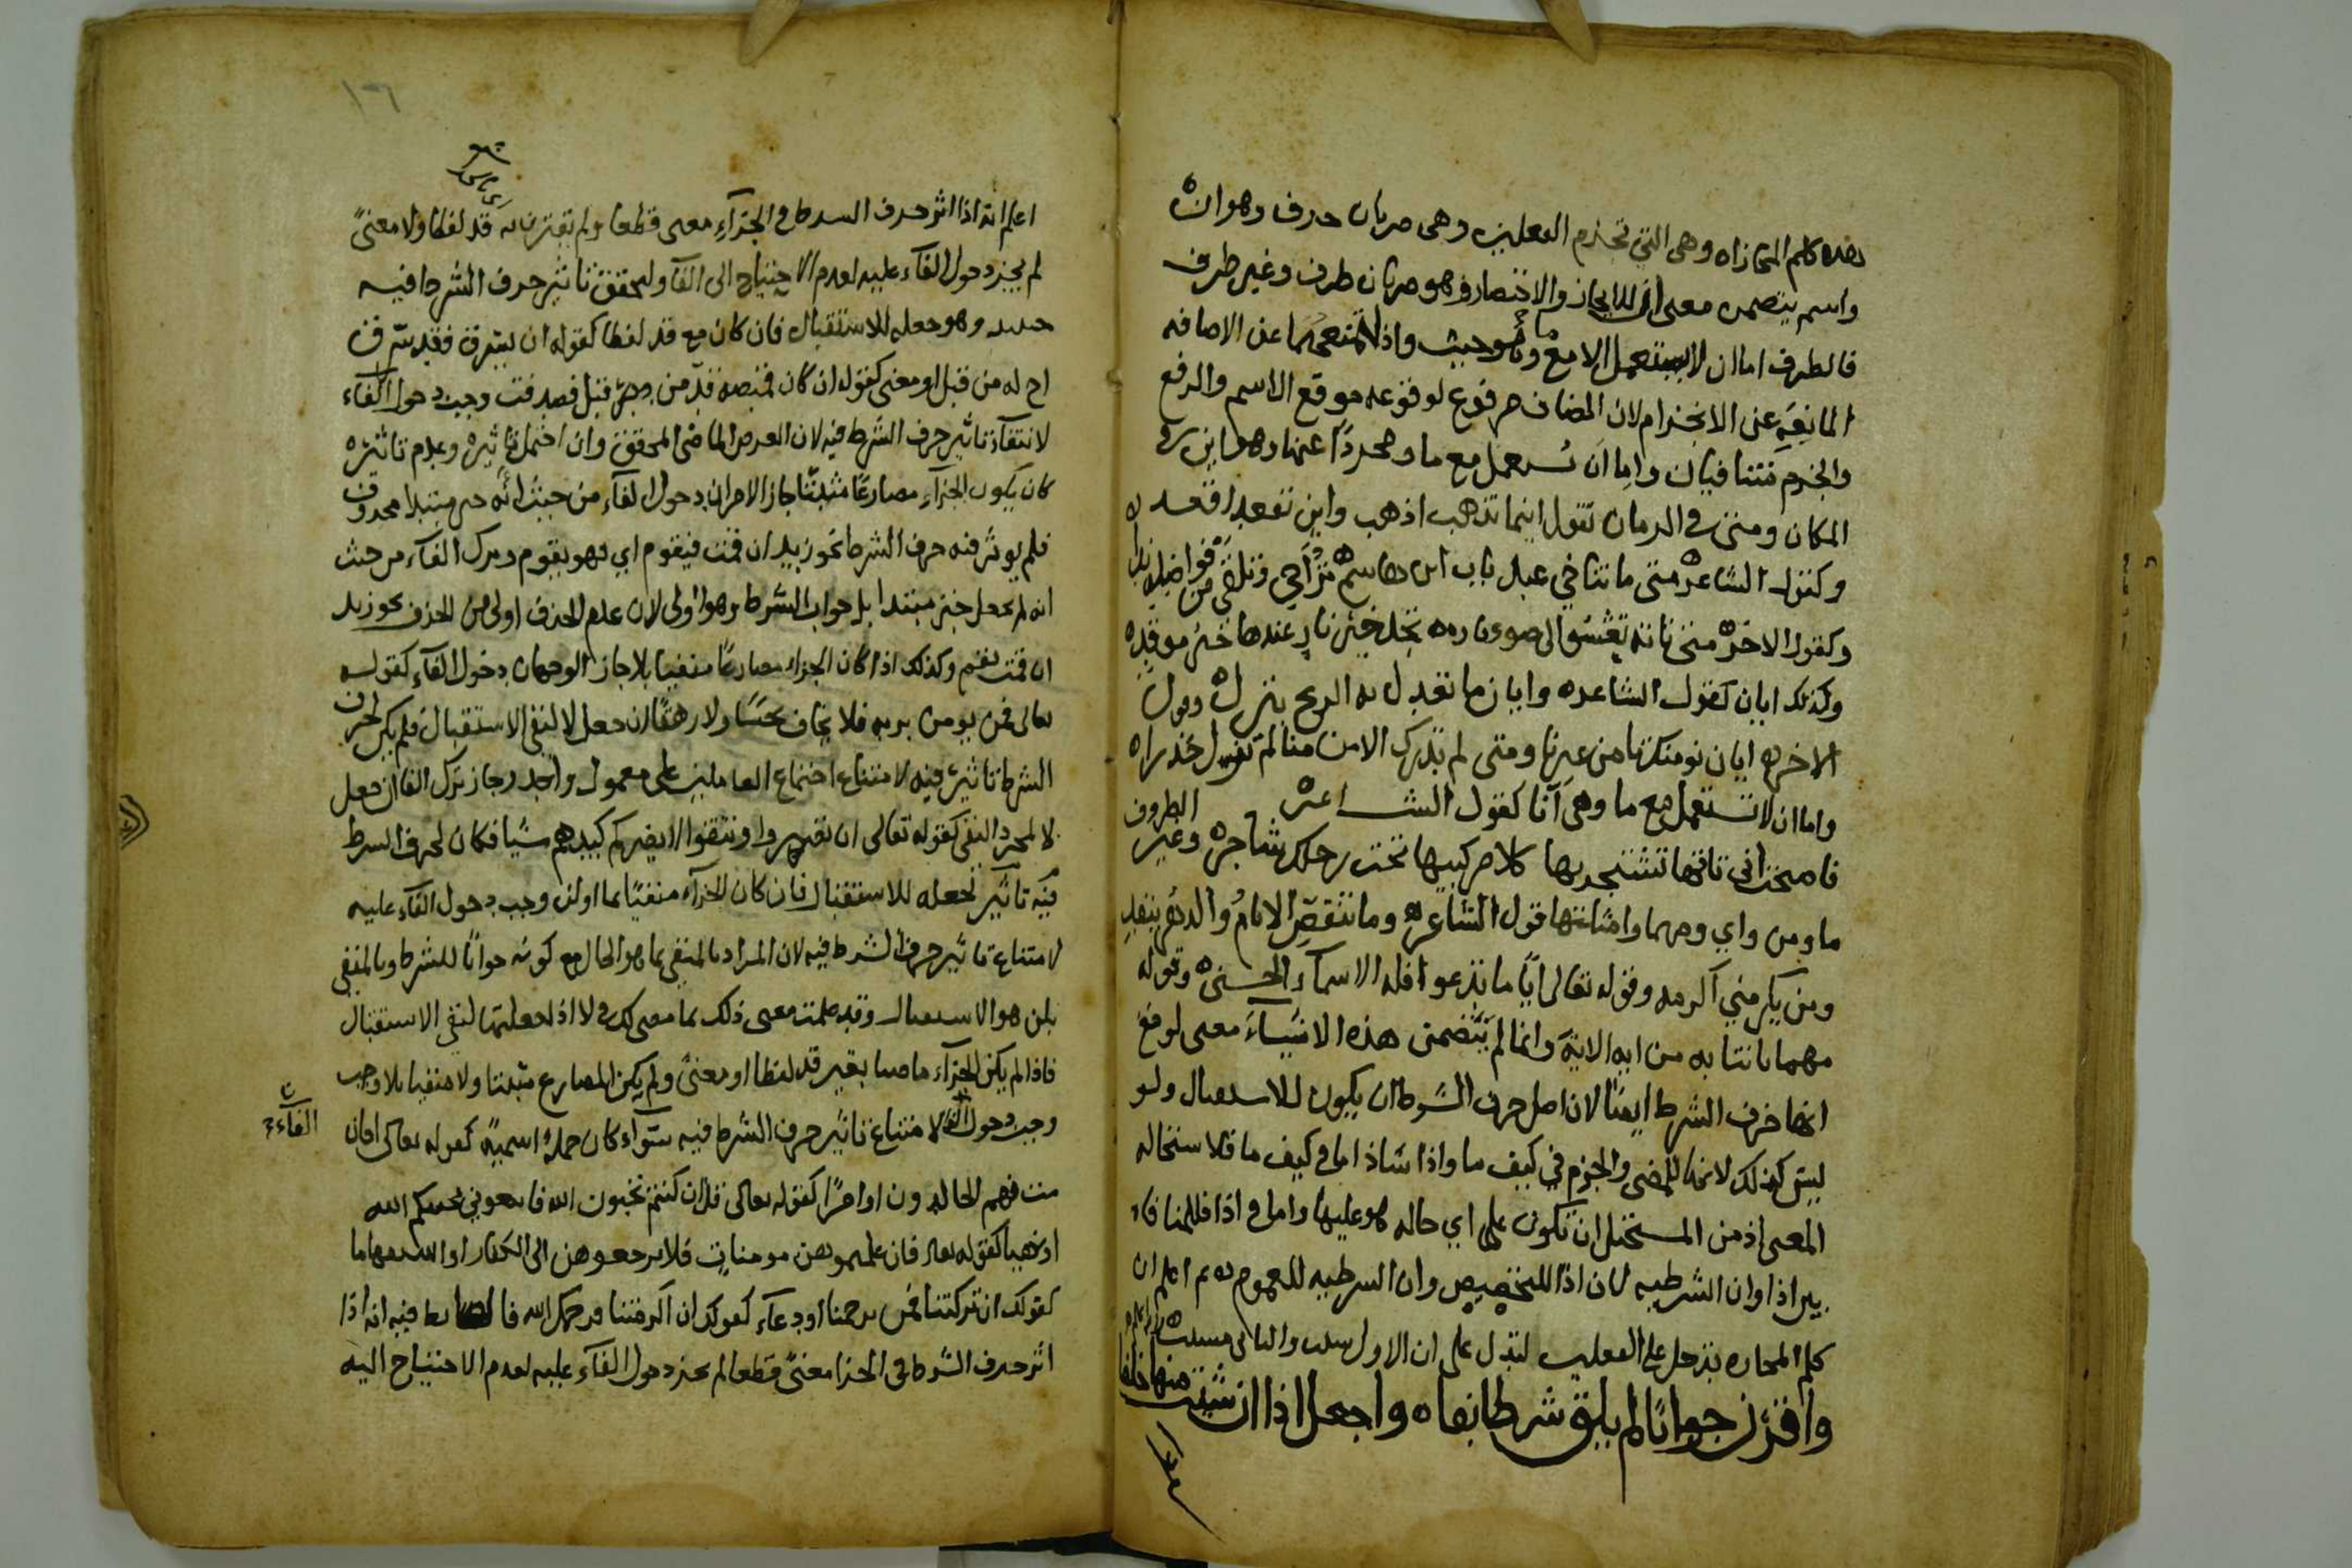 هذه كلم المجازاه وهي التي تجزم الفعلين وهي ضربان حرف وهو ان
واسم يتضمن معنى ان للايجاز والاختصار وهو ضربان ظرف وغير ظرف
فالظرف اما ان لا يستعمل الا مع ما وهو حيث واذ لتمنعهما عن الاضافه
المانعة عن الانجزام لان المضاف مرفوع لوقوعه موقع الاسم والرفع
والجزم متنافيان واما ان تستعمل مع ما ومجردا عنها وهو اين في
المكان ومتى في الزمان تقول اينما تذهب اذهب واين تقعد اقعد
وكقول الشاعر متى ما تناخي عند باب ابن هاشم تراحي وتلقي من فواضله ندا
وكقول الاخر متى تاته تعشو الى ضوء ناره تجد خير نار عندها خير موقد
وكذلك ايان كقول الشاعر وايان ما تعدل به الريح ينزل وقول
الاخر ايان نومنك تامن غيرنا ومتى لم تدرك الامن منا لم تزل حذرا
واما ان لا تستعمل مع ما وهي انا كقول الشاعر
فاصبحت انى تاتها تشتجر بها كلا مركبيها تحت رحلك شاجر وغير الظروف
ما ومن واي ومهما وامثلتها قول الشاعر وما تنقص الايام والدهر ينفد
ومن يكرمني اكرمه وقوله تعالى ايا ما تدعوا فله الاسماء الحسنى وقوله
مهما تاتنا به من اية الاية وانما لم يتضمن هذه الاشياء معنى لو مع
انها حرف الشرط ايضا لان اصل حرف الشرط ان يكون للاستقبال ولو
ليس كذلك لانها للمضي والجزم في كيف ما واذا شاذ اما في كيف ما فلاستحاله
المعنى اذ من المستحيل ان تكون على اي حاله هو عليها واما في اذا فللمنافاه
بين اذا وان الشرطيه لان اذا للتخصيص وان الشرطيه للعموم ثم اعلم ان
كلم المجازاه تدخل على الفعلين لتدل على ان الاول سبب والثاني مسبب
واقرن جوابا لم يلق شرطا بفاه واجعل اذا ان شئت منها خلفا
اعلم انه اذا اثر حرف الشرط في الجزاء معنى قطعا ولم يقترن به قد لفظا ولا معنى
لم يجز دخول الفاء عليه لعدم الاحتياج الى الفاء ولتحقق تاثير حرف الشرط فيه
حينئذ وهو جعله للاستقبال فان كان مع قد لفظا كقوله ان يسرق فقد سرق
اخ له من قبل او معنى كقوله ان كان قميصه قد من قبل فصدقت وجب دخول الفاء
لانتفاء تاثير حرف الشرط فيه لان الغرض الماضي المحقق وان احتمل تاثيره وعدم تاثيره
كان يكون الجزاء مضارعا مثبتا جاز الامران دخول الفاء من حيث انه خبر مبتدا محذوف
فلم يوثر فيه حرف الشرط نحو زيد ان قمت فيقوم اي فهو يقوم وترك الفاء من حيث
انه لم يجعل خبر مبتدا بل جواب الشرط وهو اولى لان عدم الحذف اولى من الحذف نحو زيد
ان قمت يقم وكذلك اذا كان الجزاء مضارعا منفيا بلا جاز الوجهان دخول الفاء كقوله
تعالى فمن يومن بربه فلا يخاف بخسا ولا رهقا ان جعل لا لنفي الاستقبال فلم يكن لحرف
الشرط تاثير فيه لامتناع اجتماع العاملين على معمول واحد وجاز ترك الفا ان جعل
لا لمجرد النفي كقوله تعالى ان تصبروا وتتقوا لا يضركم كيدهم شيا فكان لحرف الشرط
فيه تاثير لجعله للاستقبال فان كان الجزاء منفيا بما او لن وجب دخول الفاء عليه
لامتناع تاثير حرف الشرط فيه لان المراد بالمنفي بما هو الحال مع كونه جوابا للشرط وبالمنفي
بلن هو الاستقبال وقد علمت معنى ذلك بما مضى لك في لا اذا جعلتها لنفي الاستقبال
فاذا لم يكن الجزاء ماضيا بغير قد لفظا او معنى ولم يكن المضارع مثبتا ولا منفيا بلا وجب
وجب دخول الفاء لامتناع تاثير حرف الشرط فيه سواء كان جملة اسمية كقوله تعالى افان
الفاء
مت فهم الخالدون او امرا كقوله تعالى قل ان كنتم تحبون الله فاتبعوني يحببكم الله
او نهيا كقوله تعالى فان علمتموهن مومنات فلا ترجعوهن الى الكفار او استفهاما
كقولك ان تركتنا فمن يرحمنا او دعاء كقولك ان اكرمتنا فرحمك الله فالضابط فيه انه اذا
اثر حرف الشرط في الجزا معنى قطعا لم يجز دخول الفاء عليه لعدم الاحتياج اليه